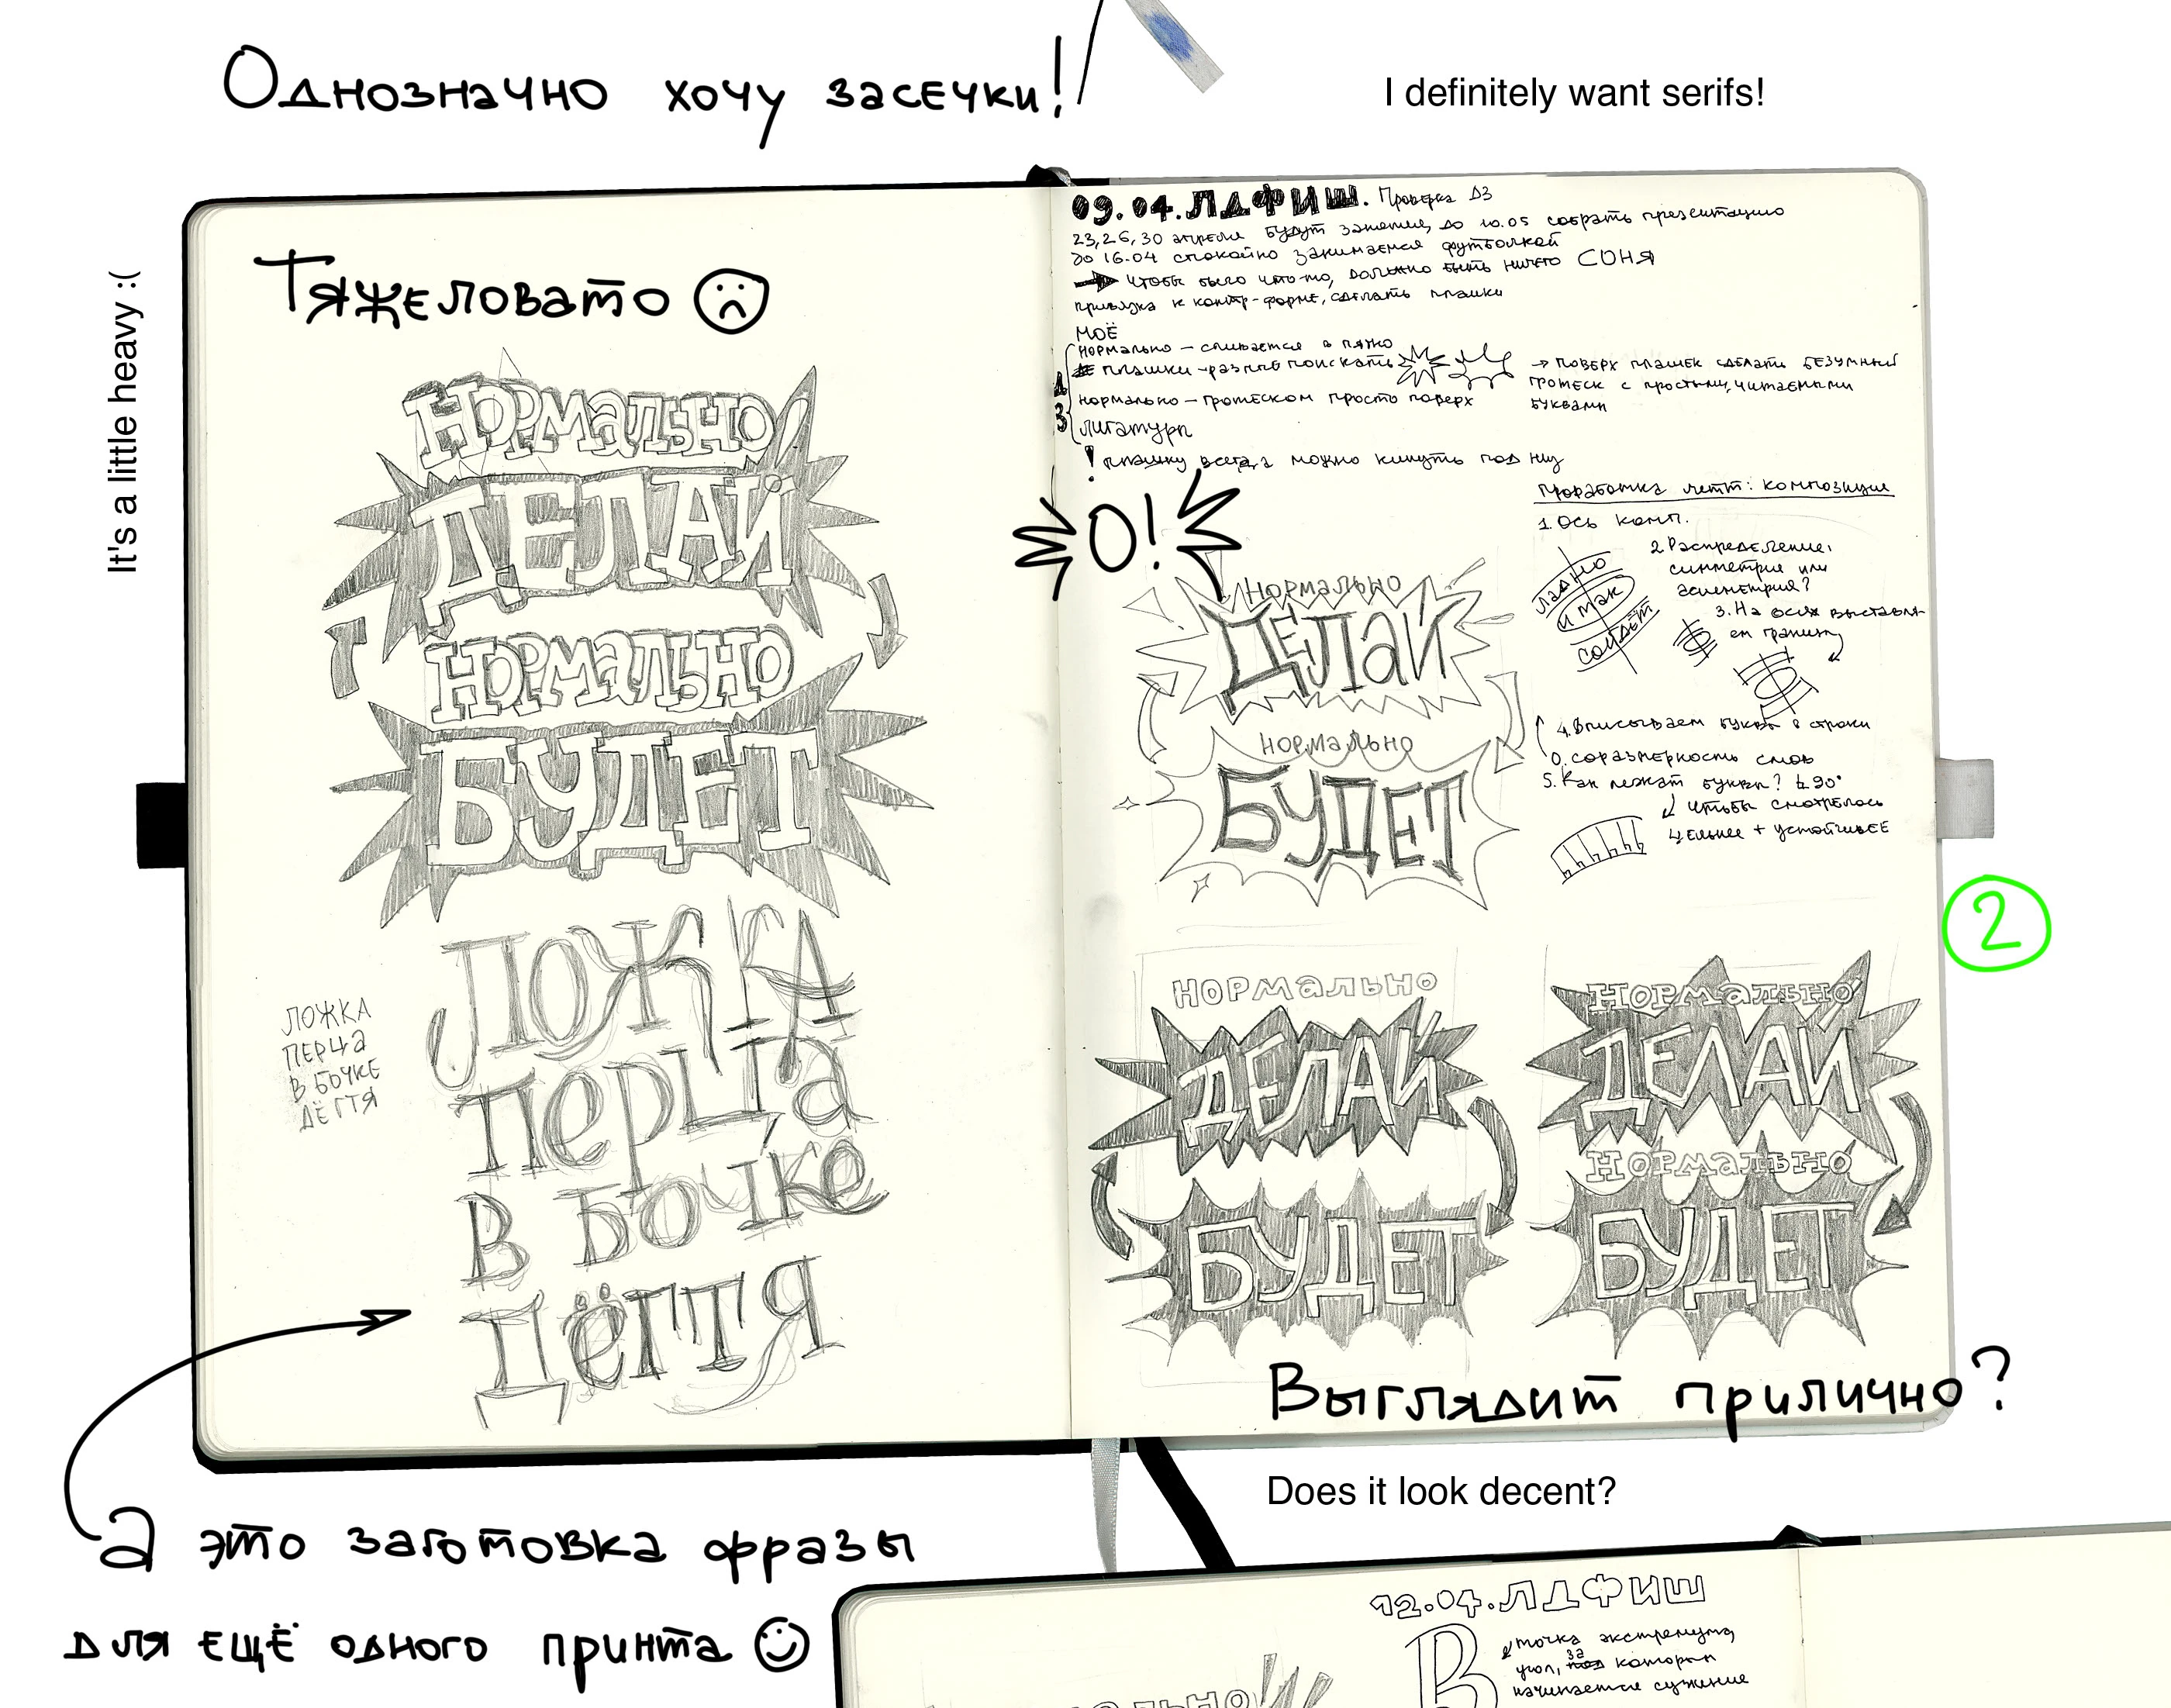 Однозначно хочу засечки!
I definitely want serifs!
It's a little heavy :(
Тяжеловато
НОРМАЛЬНО
ДЕЛАЙ
НОРМАЛЬНО
БУДЕТ
ЛОЖКА
ПЕРЦА
В БОЧКЕ
ДЁГТЯ
ЛОЖКА
ПЕРЦа
В БОЧКе
ДЁГТЯ
09.04.ЛДФИШ. Проверка ДЗ
23, 26, 30 апреля будут занятия, до 10.05 собрать презентацию
до 16.04 спокойно занимаемся футболкой
чтобы было что-то, должно быть ничего СОНЯ
привязка к контр-форме, сделать плашки
МОЁ
ДЗ
нормально – сливается в пятно
плашки – разные поискать
нормально – гротеском просто поверх
лигатуры
→ поверх плашек сделать БЕЗУМНЫЙ
гротеск с простыми, читаемыми
буквами
! плашку всегда можно кинуть под низ
О!
Проработка летт: композиция
1. Ось комп.
ЛАДНО
И ТАК
СОЙДЁТ
2. Распределение:
симметрия или
асимметрия?
3. На осях выставля-
ем границы
4. Вписываем буквы в строки
0. соразмерность слов
5. Как лежат буквы? 90°
чтобы смотрелось
цельнее + устойчивее
НОРМАЛЬНО
ДЕЛАЙ
НОРМАЛЬНО
БУДЕТ
2
НОРМАЛЬНО
ДЕЛАЙ
БУДЕТ
НОРМАЛЬНО
ДЕЛАЙ
НОРМАЛЬНО
БУДЕТ
Выглядит прилично?
Does it look decent?
а это заготовка фразы
для ещё одного принта
12.04.ЛДФИШ
В
точка экстремума,
угол, за которым
начинается сужение